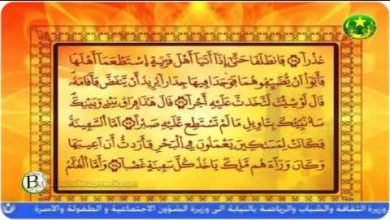 عُذْراً فَانطَلَقَا حَتَّىٰ إِذَا أَتَيَا أَهْلَ قَرْيَةٍ اِسْتَطْعَمَا أَهْلَهَا
فَأَبَوْا أَنْ يُّضَيِّفُوهُمَا فَوَجَدَا فِيهَا جِدَاراً يُرِيدُ أَنْ يَّنقَضَّ فَأَقَامَهُ
قَالَ لَوْ شِئْتَ لَتَّخَذتَّ عَلَيْهِ أَجْراً قَالَ هَٰذَا فِرَاقُ بَيْنِي وَبَيْنِكَ
سَأُنَبِّئُكَ بِتَأْوِيلِ مَا لَمْ تَسْتَطِع عَّلَيْهِ صَبْراً أَمَّا السَّفِينَةُ
فَكَانَتْ لِمَسَٰكِينَ يَعْمَلُونَ فِي الْبَحْرِ فَأَرَدتُّ أَنْ أَعِيبَهَا
وَكَانَ وَرَاءَهُم مَّلِكٌ يَأْخُذُ كُلَّ سَفِينَةٍ غَصْباً وَأَمَّا الْغُلَٰمُ
يرة الثقافة والشباب والرياضة بالنيابة الى وزيرة الشؤون الاجتماعية و الطفولة والاسرة